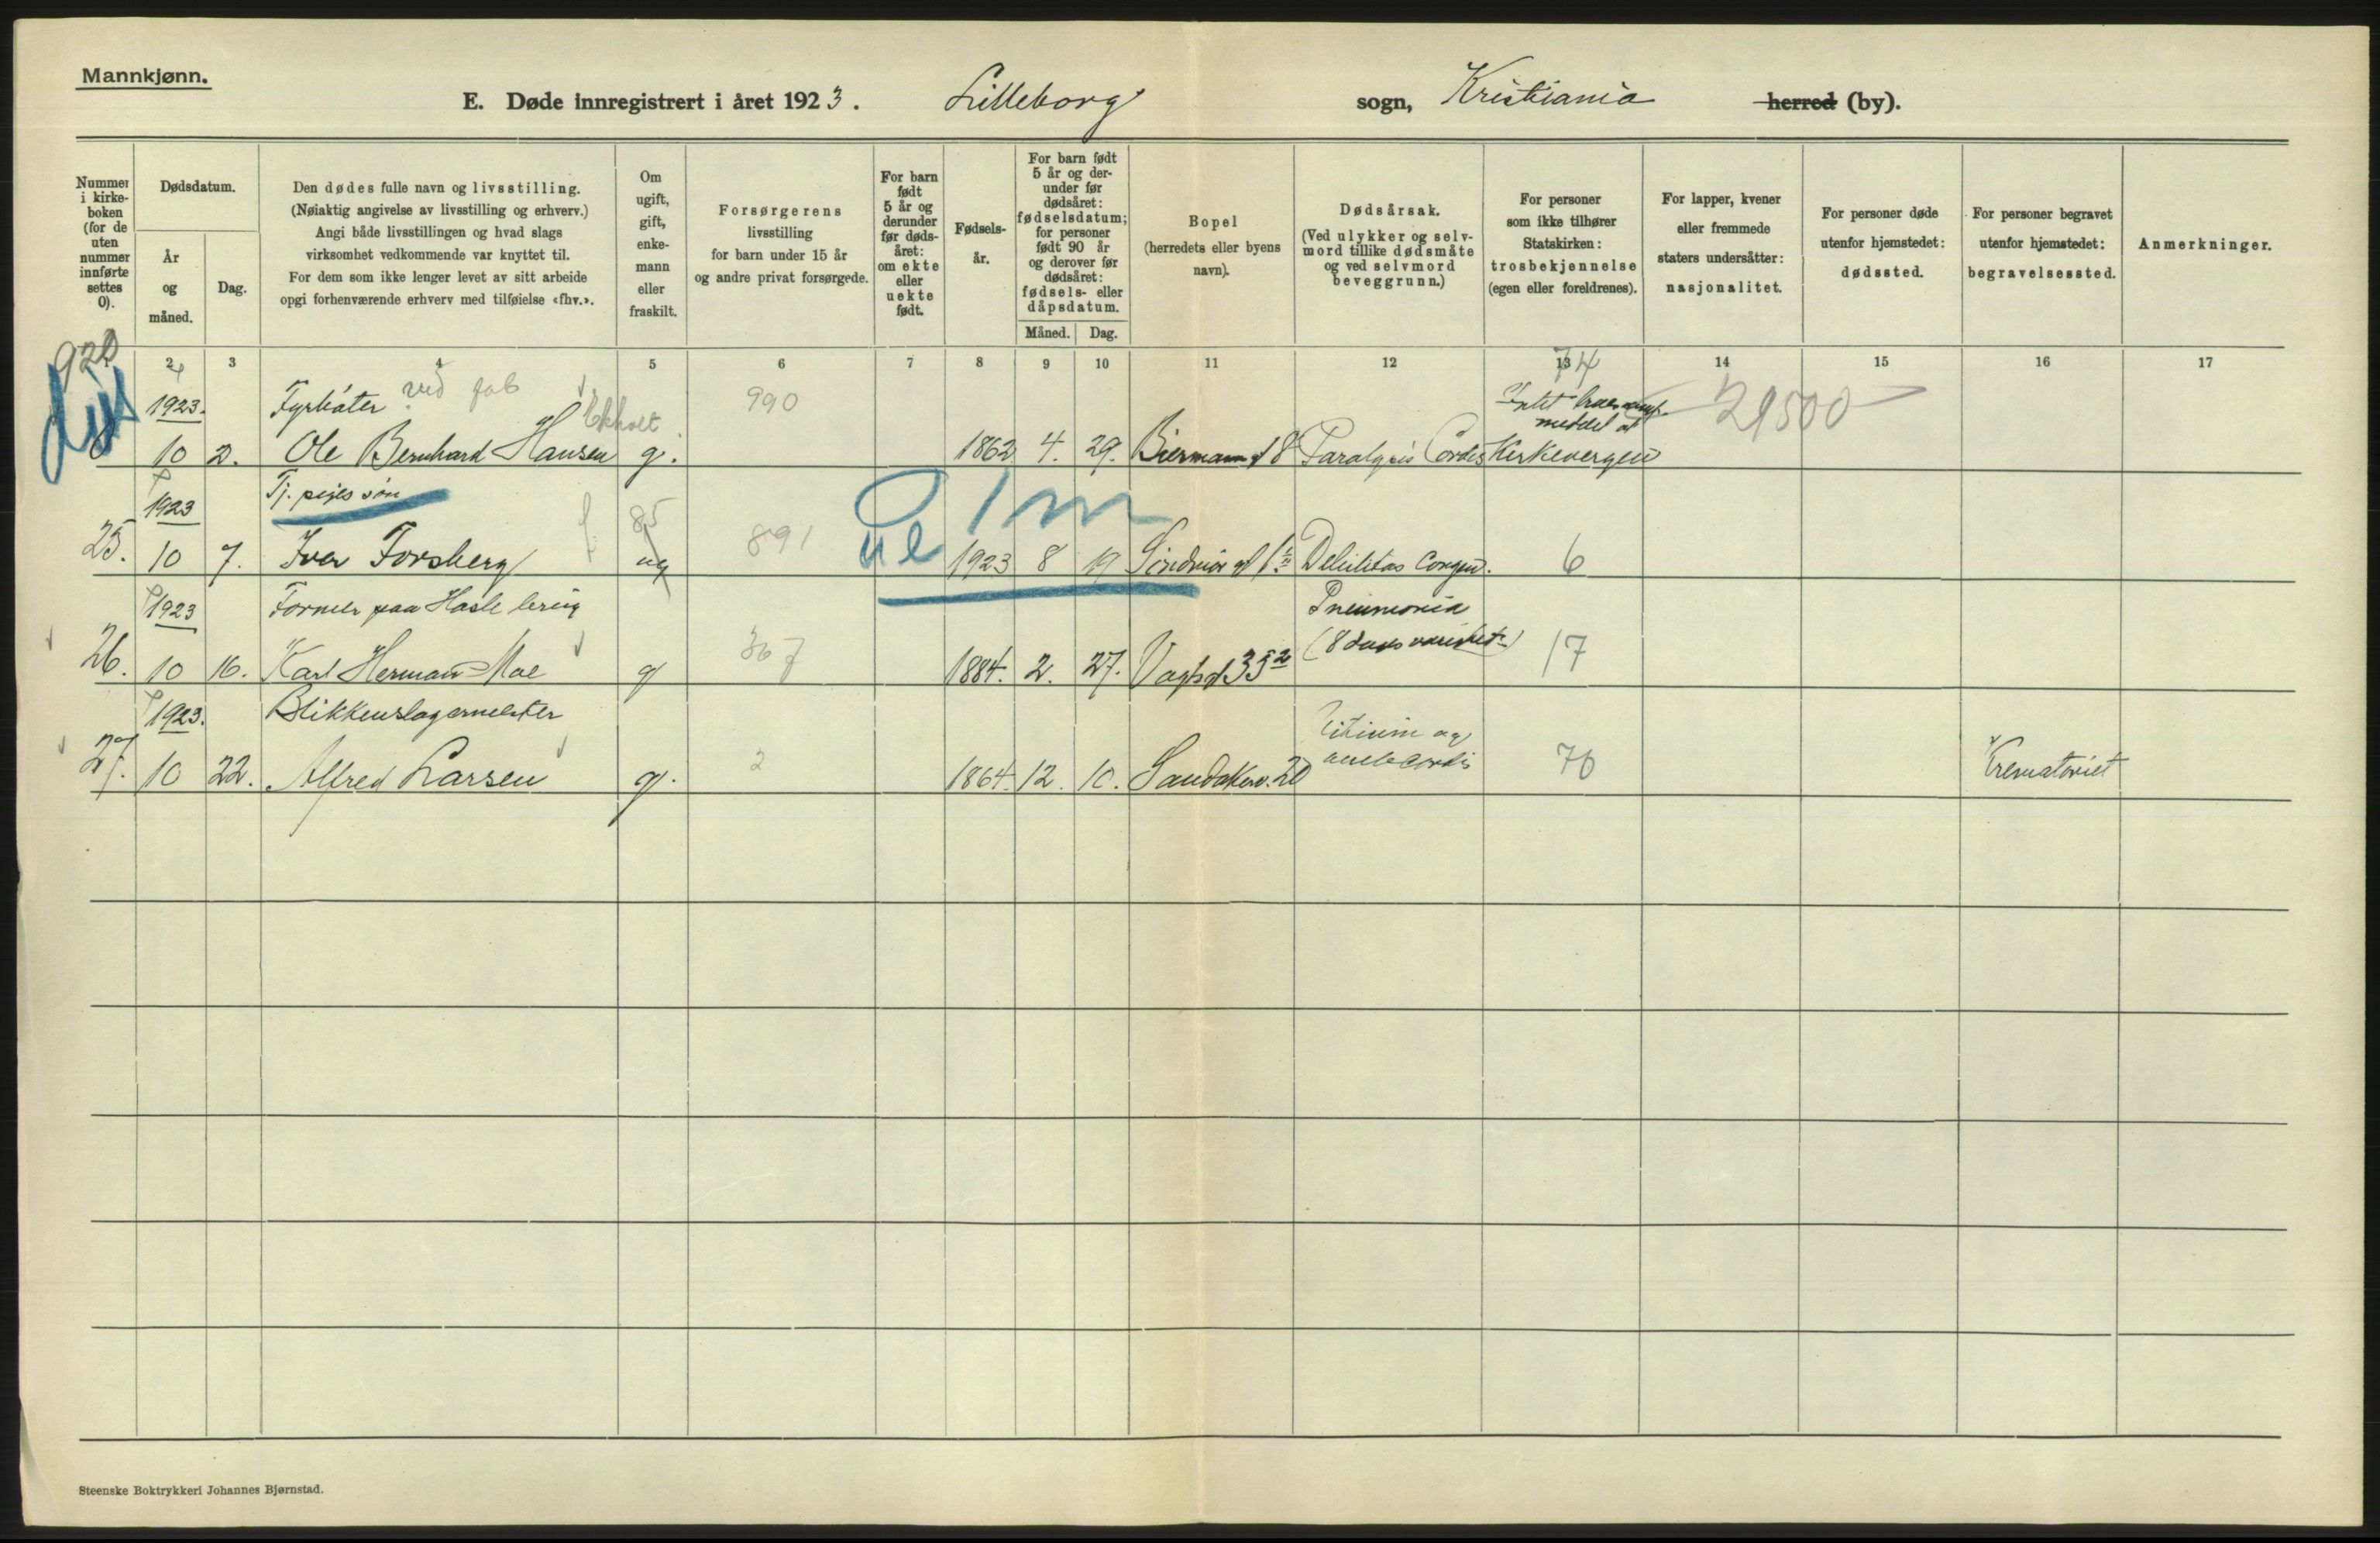 Mannkjønn.
E. Døde innregistrert i året 1923. Lilleborg sogn, Kristiania herred (by).
Nummer i kirke-boken (for de uten nummer innførte settes 0).
Dødsdatum.
År og måned.
Dag.
Den dødes fulle navn og livsstilling.
(Nøiaktig angivelse av livsstilling og erhverv.)
Angi både livsstillingen og hvad slags
virksomhet vedkommende var knyttet til.
For dem som ikke lenger levet av sitt arbeide
opgi forhenværende erhverv med tilføielse «fhv.».
Om ugift, gift, enke-mann eller fraskilt.
Forsørgerens
livsstilling
for barn under 15 år
og andre privat forsørgede.
For barn født 5 år og derunder før døds-året: om ekte eller uekte født.
Fødsels-år.
For barn født 5 år og der-under før dødsåret: fødselsdatum; for personer født 90 år og derover før dødsåret: fødsels- eller dåpsdatum.
Måned. Dag.
Bopel
(herredets eller byens
navn).
Dødsårsak.
(Ved ulykker og selv-
mord tillike dødsmåte
og ved selvmord
beveggrunn.)
For personer
som ikke tilhører
Statskirken:
trosbekjennelse
(egen eller foreldrenes).
For lapper, kvener
eller fremmede
staters undersåtter:
nasjonalitet.
For personer døde
utenfor hjemstedet:
dødssted.
For personer begravet
utenfor hjemstedet:
begravelsessted.
Anmerkninger.
2 3 4 5 6 7 8 9 10 11 12 13 14 15 16 17
74
1923. Fyrbøter ved fab 990 21500
Ekholt
10 2. Ole Bernhard Hansen g. 1862 4. 29. Biermanns g 8 Paralysis Cordis Kirkevergen
1923 Tj. piges søn 85 1 m
25. 10 7. Iver Forsberg ug 891 ue 1923 8 19 Debilitas Congen. 6
1923 Former paa Hasle Pneumonia
26. 10 16. Karl Herman Moe g 367 1884. 2. 27. Vogtsg 33 17
1923. Blikkenslagermester
27. 10 22. Alfred Larsen g. 2 1864. 12. 10. Sandakerv. 20 cordis 76 Krematoriet
Steenske Boktrykkeri Johannes Bjørnstad.